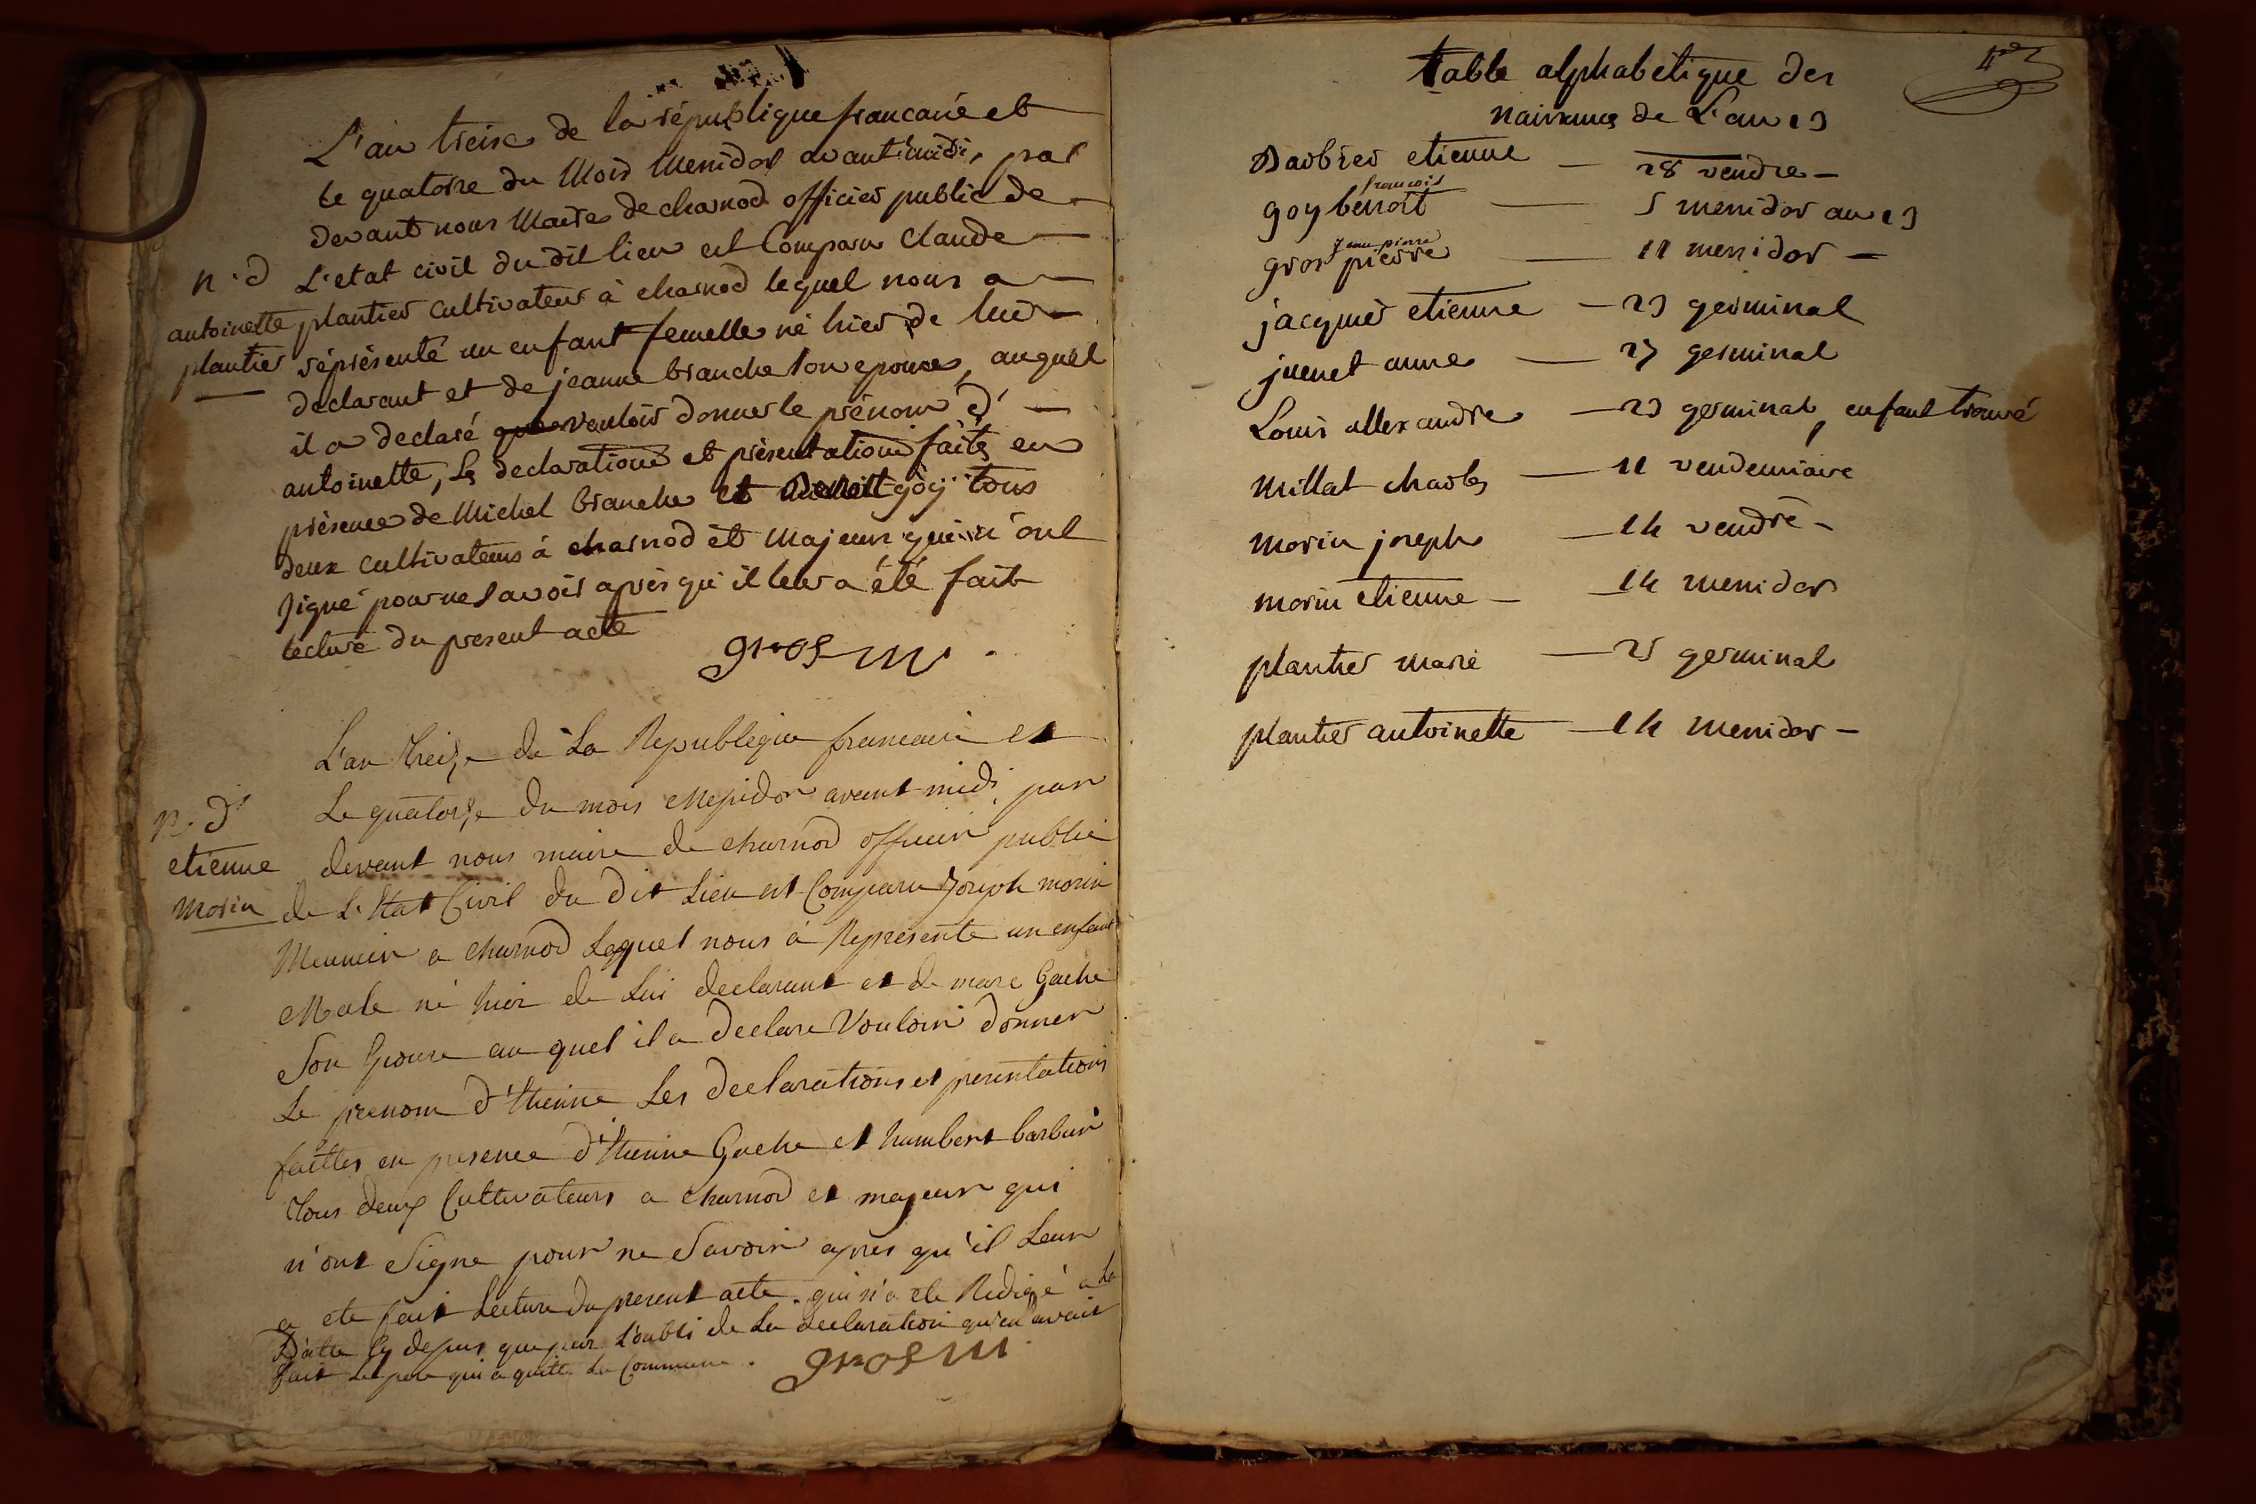 L'an treise de la république francaise et
le quatorse du Mois Messidor avant midi, par
devant nous Maire de charnod officier public de
L'etat civil du dit lieu est Comparu Claude
plantier cultivateur à charnod lequel nous a
réprésenté un enfant femelle né hier de lui
declarant et de jeanne branche son epouse, auquel
il a declaré vouloir donner le prénom d'
antoinette, les declarations et présentations faites en
présence de Michel branche et benoit goÿ tous
deux cultivateurs à charnod et Majeurs qui n'ont
signé pour ne savoir après qu'il leur a été fait
lecture du present acte
n. d
antoinette
plantier
gros m
L'an treize de La Republique francaise et
Le quatorze du mois Messidor avant midi par
devant nous maire de charnod officier public
de L'Etat Civil du dit Lieu est Comparu Joseph morin
Meunier a charnod Lequel nous à Représenté un enfant
Male né hier de Lui declarant et de marie Gache
Son Epouse au quel il a declare Vouloir donner
Le prenom d'Etienne Les declarations et presentations
faittes en presence d'Etienne Gache et humbert barbier
Tous deux Cultivateurs a charnod et majeurs qui
n'ont Signe pour ne Savoir apres qu'il Leur
a ete fait Lecture du present acte. qui n'a ete Redigé a La
Datte Cy dessus que par L'oubli de La declaration qu'en avait
fait Le pere qui a quitté La Commune.
n. d'
etienne
morin
gros m
table alphabétique des
naissances de L'an 13
Barbier etienne — 28 vendre —
françois
goy benoit — 5 messidor an 13
jean pierre
gros pierre — 11 messidor —
jacquier etienne — 23 germinal
juenet anne — 27 germinal
Louis allexandre — 23 germinal, enfant trouvé
Millat charles — 11 vendemiaire
Morin joseph — 14 vendre —
morin etienne — 14 messidor
plantier marie — 25 germinal
plantier antoinette — 14 messidor —